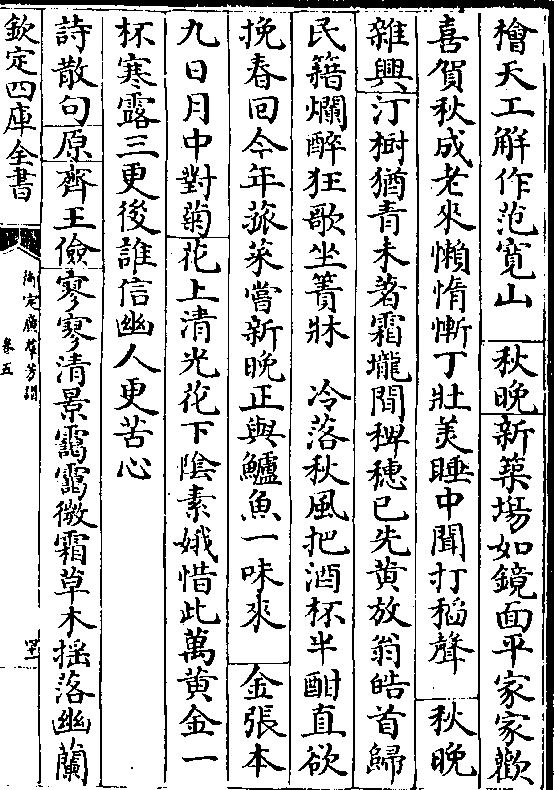 檜天工解作范寛山　秋晚新築場如鏡面平家家歡
喜賀秋成老來懶惰慚丁壯美睡中聞打稻聲　秋晚
雜興汀樹猶青未著霜壠間稗穗已先黄放翁皓首歸
民籍爛醉狂歌坐簣牀　冷落秋風把酒杯半酣直欲
挽春回今年菰菜嘗新晚正與鱸魚一味來　金張本
九日月中對菊花上清光花下隂素娥惜此萬黄金一
杯寒露三更後誰信幽人更苦心
詩散句原齊王儉寥寥清景靄靄微霜草木揺落幽蘭
欽定四庫全書
御定廣羣芳譜
卷五